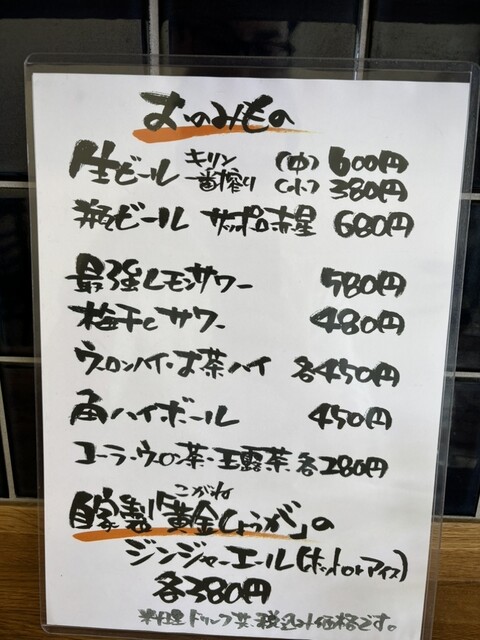 おのみもの
生ビール キリン一番搾り (中) 600円
(小) 380円
瓶ビール サッポロ赤星 680円
最強レモンサワー 580円
梅干しサワー 480円
ウーロンハイ・お茶ハイ 各450円
角ハイボール 450円
コーラ・ウーロン茶・玉露茶 各280円
こがね
自家製「黄金しょうが」の
ジンジャーエール(ホットorアイス)
各380円
料理ドリンク共、税込み価格です。